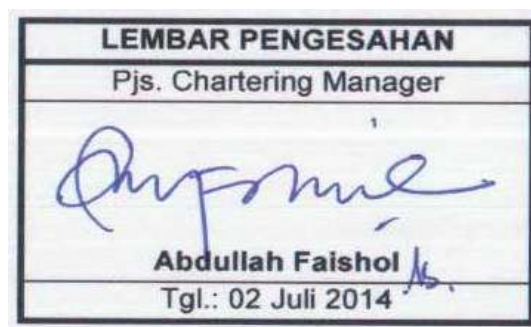 LEMBAR PENGESAHAN
Pjs. Chartering Manager
Abdullah Faishol
Tgl.: 02 Juli 2014